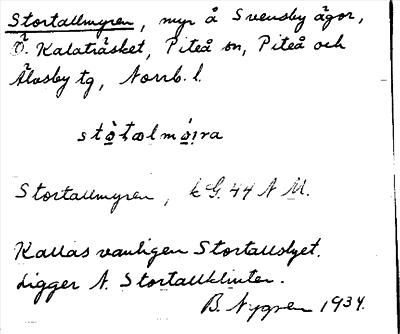 Stortallmyren, myr å Svensby ägor,
Ö. Kalaträsket, Piteå sn, Piteå och
Älvsby tg, Norrb. l.
stò̤tal mø̤ira
Stortallmyren, k G. 44 A M.
Kallas vanligen Stortallslyet.
Ligger N. Stortallklinten.
B. Nygren 1934.